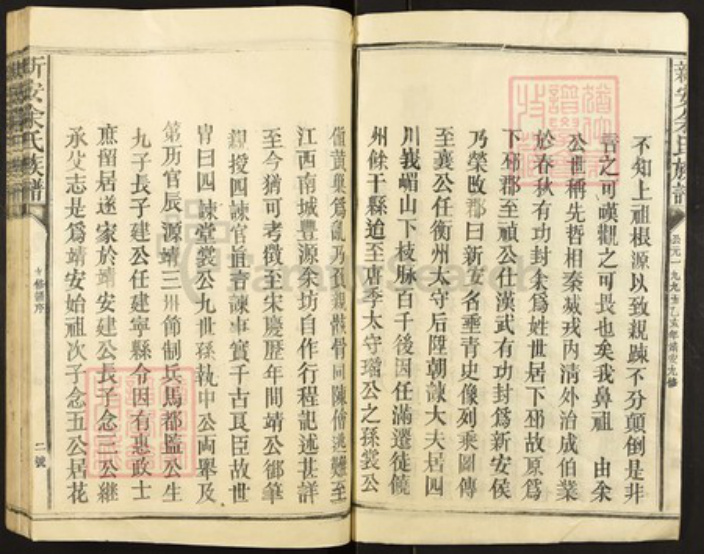 新安余氏族譜
公元一九九五乙亥年靖安九修
不知上祖根源以致親踈不分顛倒是非
言之可嘆觀之可畏也矣我鼻祖 由余
公世稱先哲相秦烕戎內清外治成伯業
於春秋有功封余爲姓世居下邳故原爲
下邳郡至禎公仕漢武有功封爲新安侯
乃榮改郡曰新安名垂青史像列乘圖傳
至襄公任衡州太守后陞朝諫大夫居四
川峩嵋山下枝脉百千後因任滿遷徙饒
州餘干縣迨至唐季太守璿公之孫裳公
値黃巢爲亂乃負親骸骨同陳僧逃難至
江西南城豐源余坊自作行程記述甚詳
至今猶可考徵至宋慶歷年間靖公御筆
親授四諫官直言諫事實千古良臣故世
胄曰四諫堂裳公九世孫執中公両舉及
第所官辰源靖三州節制兵馬都監公生
九子長子建公任建寧縣令因有惠政士
庶留居遂家於靖安建公長子念三公継
承父志是爲靖安始祖次子念五公居花
新安余氏族譜
九修譜序
二號